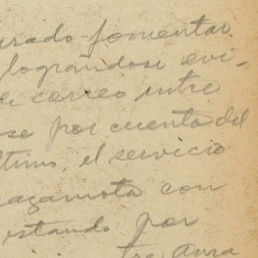 urado fomentar
lograndose evi-
e correo entre
se por cuenta del
ltimo, el servicio
agamota con
estando por